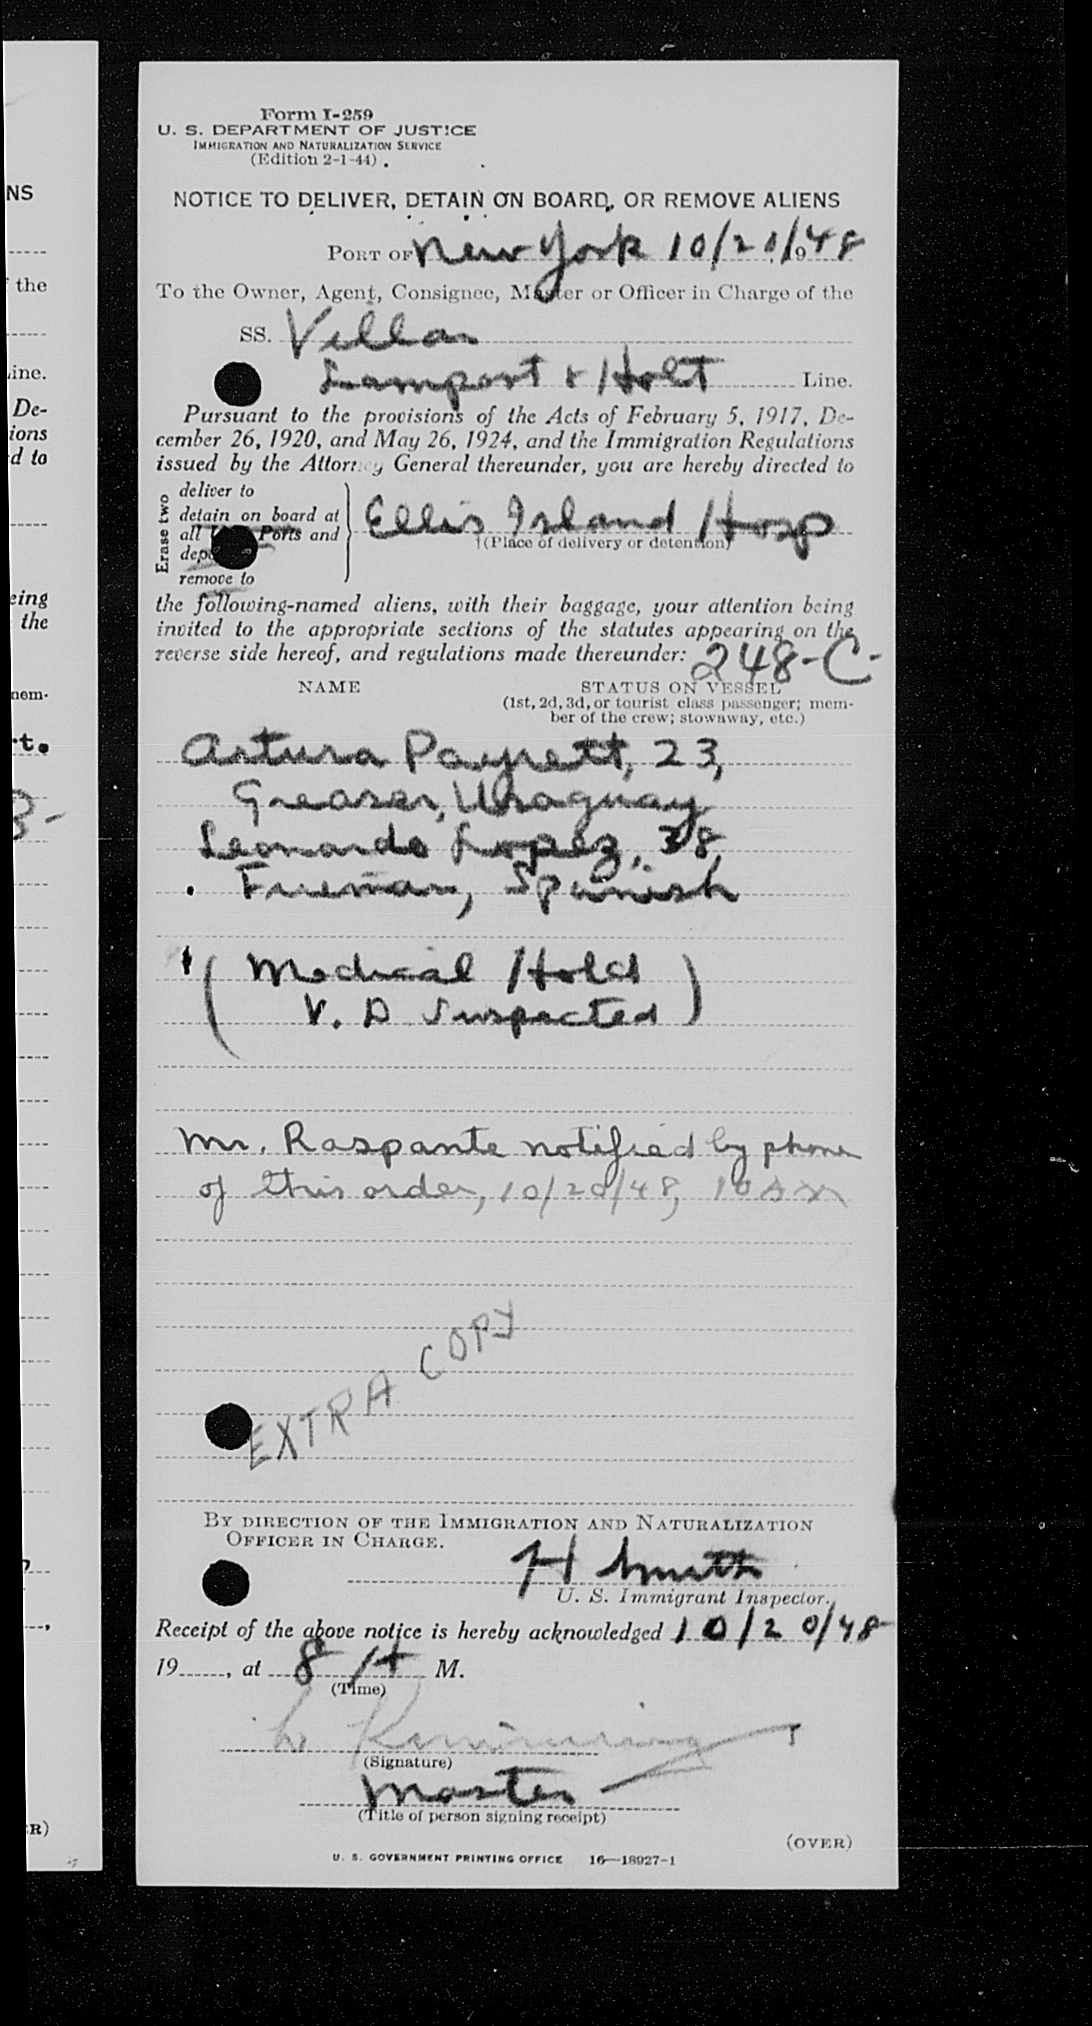 Form I-259
U. S. DEPARTMENT OF JUSTICE
IMMIGRATION AND NATURALIZATION SERVICE
(Edition 2-1-44)
NOTICE TO DELIVER, DETAIN ON BOARD, OR REMOVE ALIENS
PORT OF New York 10/20/1948
To the Owner, Agent, Consignee, Master or Officer in Charge of the
SS. Villar
Lamport & Holt Line.
Pursuant to the provisions of the Acts of February 5, 1917, De-
cember 26, 1920, and May 26, 1924, and the Immigration Regulations
issued by the Attorney General thereunder, you are hereby directed to
Erase two
deliver to
detain on board at
all Ports and
remove to
Ellis Island Hosp
(Place of delivery or detention)
the following-named aliens, with their baggage, your attention being
invited to the appropriate sections of the statutes appearing on the
reverse side hereof, and regulations made thereunder: 248-C-
NAME STATUS ON VESSEL
(1st, 2d, 3d, or tourist class passenger; mem-
ber of the crew; stowaway, etc.)
Arturo Payrett, 23,
Greaser, Uraguay
Leonardo Lopez, 38,
Fireman, Spanish
(Medical Hold
V. D Suspected)
Mr. Raspante notified by phone
of this order, 10/20/48, 10 AM
EXTRA COPY
BY DIRECTION OF THE IMMIGRATION AND NATURALIZATION
OFFICER IN CHARGE.
H Smith
U. S. Immigrant Inspector.
Receipt of the above notice is hereby acknowledged 10/20/48
19, at 8 A M.
(Time)
(Signature)
Master
(Title of person signing receipt)
(OVER)
U. S. GOVERNMENT PRINTING OFFICE 16—18927-1
NS
the
ine.
De-
ions
d to
eing
the
nem-
rt.
3-
R)